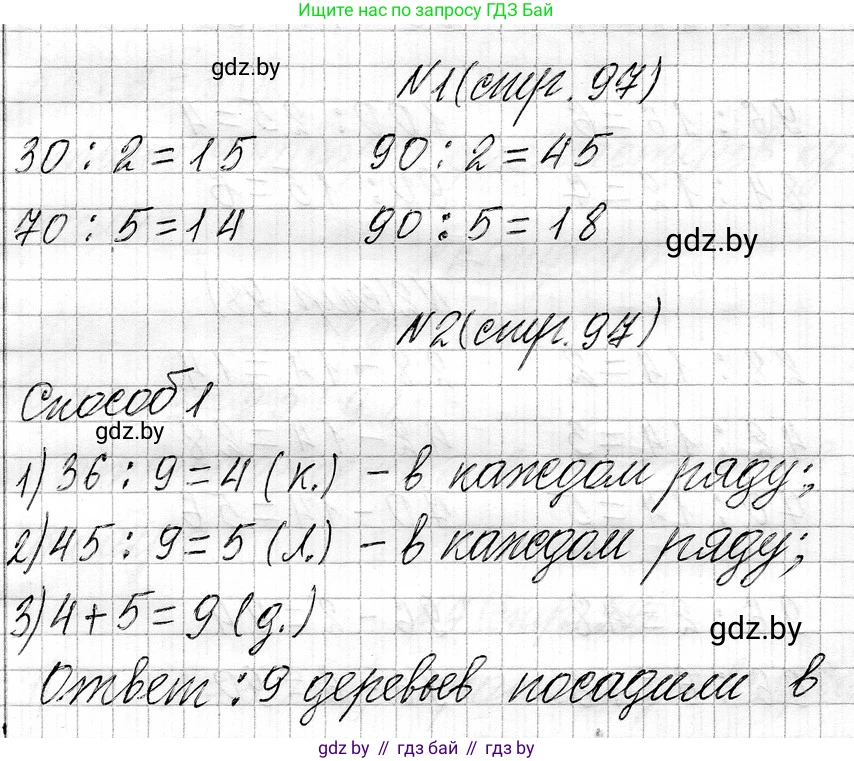 Ищите нас по запросу ГДЗ Бай
gdz.by
№1(стр. 97)
30 : 2 = 15 90 : 2 = 45
70 : 5 = 14 90 : 5 = 18
gdz.by
№2(стр. 97)
Способ 1
gdz.by
1) 36 : 9 = 4 (к.) – в каждом ряду;
2) 45 : 9 = 5 (л.) – в каждом ряду;
3) 4 + 5 = 9 (д.)
gdz.by
Ответ : 9 деревьев посадили в
gdz by // гдз бай // gdz by